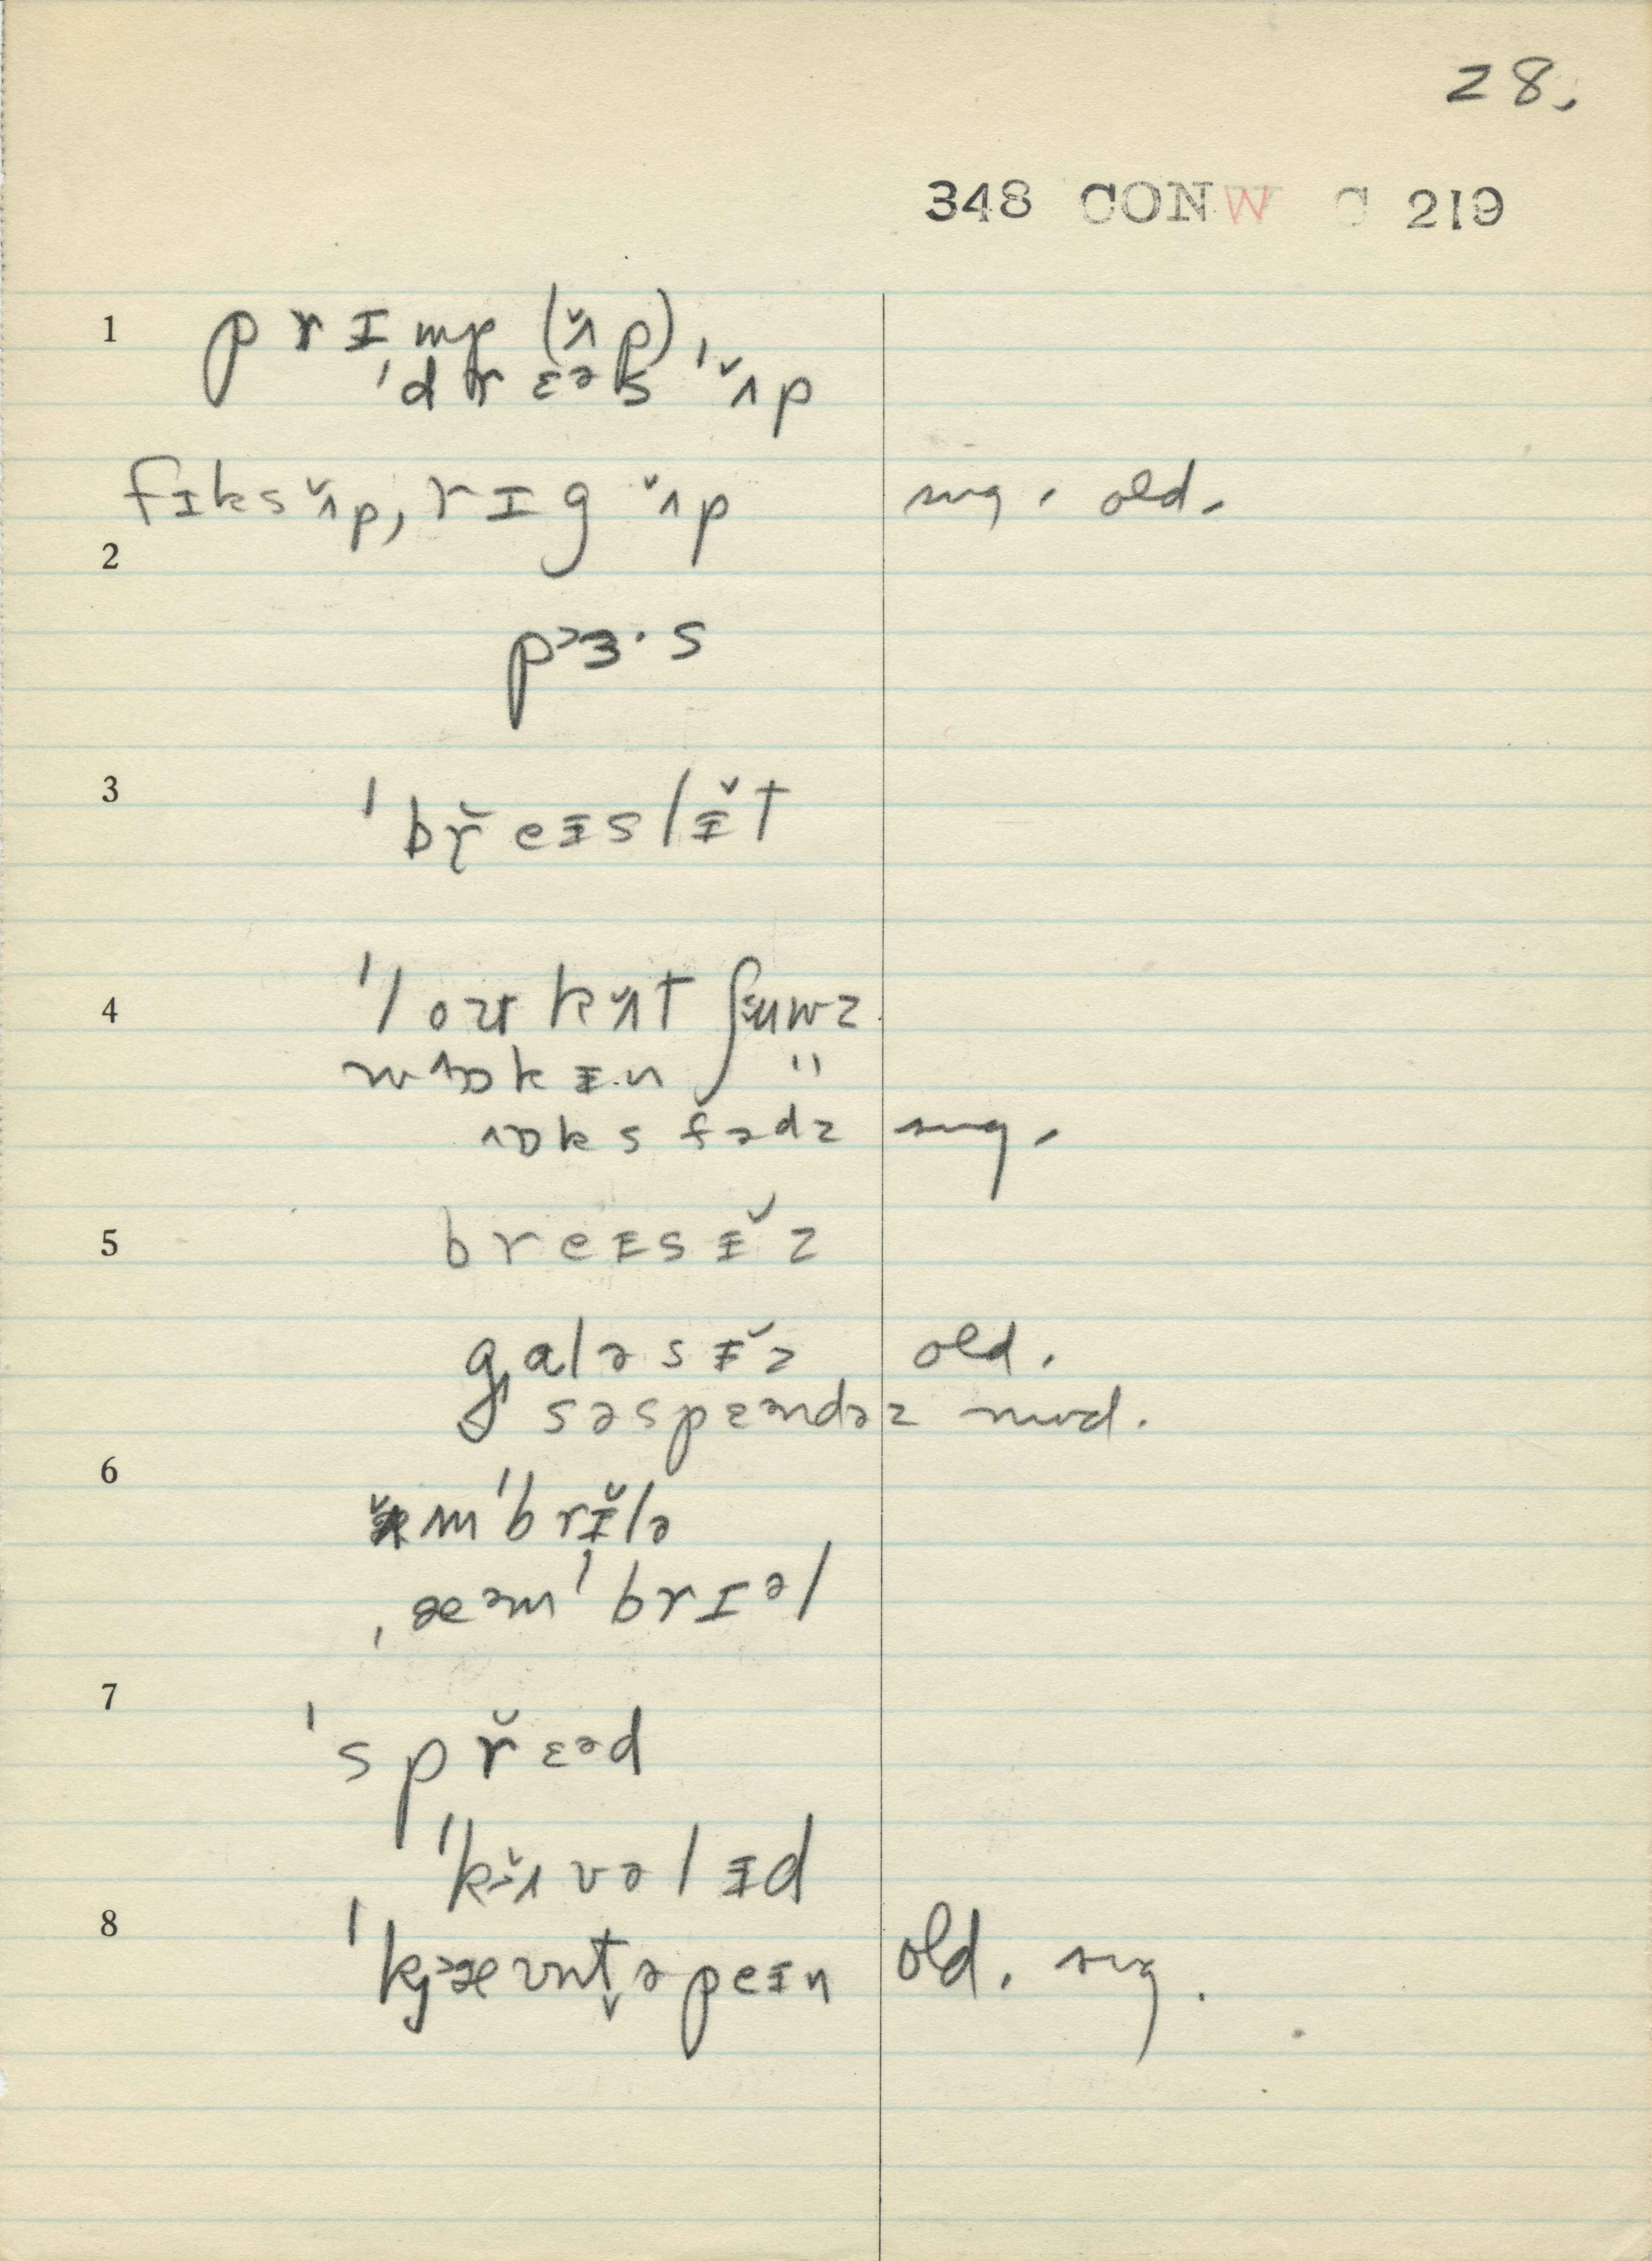 28.
348 CONW C 219
1 prɪmp (ʌ̌p),
ˈdrɛəs ˈʌ̌p
fɪks ʌ̌p, rɪg ʌ̌p sug. old.
2
pɜ·s
3 ˈbř̜eɪslɪ̌t
4 ˈloʊkʌ̌t ʃuwz
wɒkɪn "
ɒksfədz sug.
5 breɪsɪ̌z
galəsɪ̌z old.
səspɛəndəz mod.
6
ʌ̌mˈbrɪ̌lə
ˌæəmˈbrɪəl
7
ˈspřɛəd
ˈkʌ̌vəlɪd
8 ˈkæʊnt̬əpeɪn old. sug.